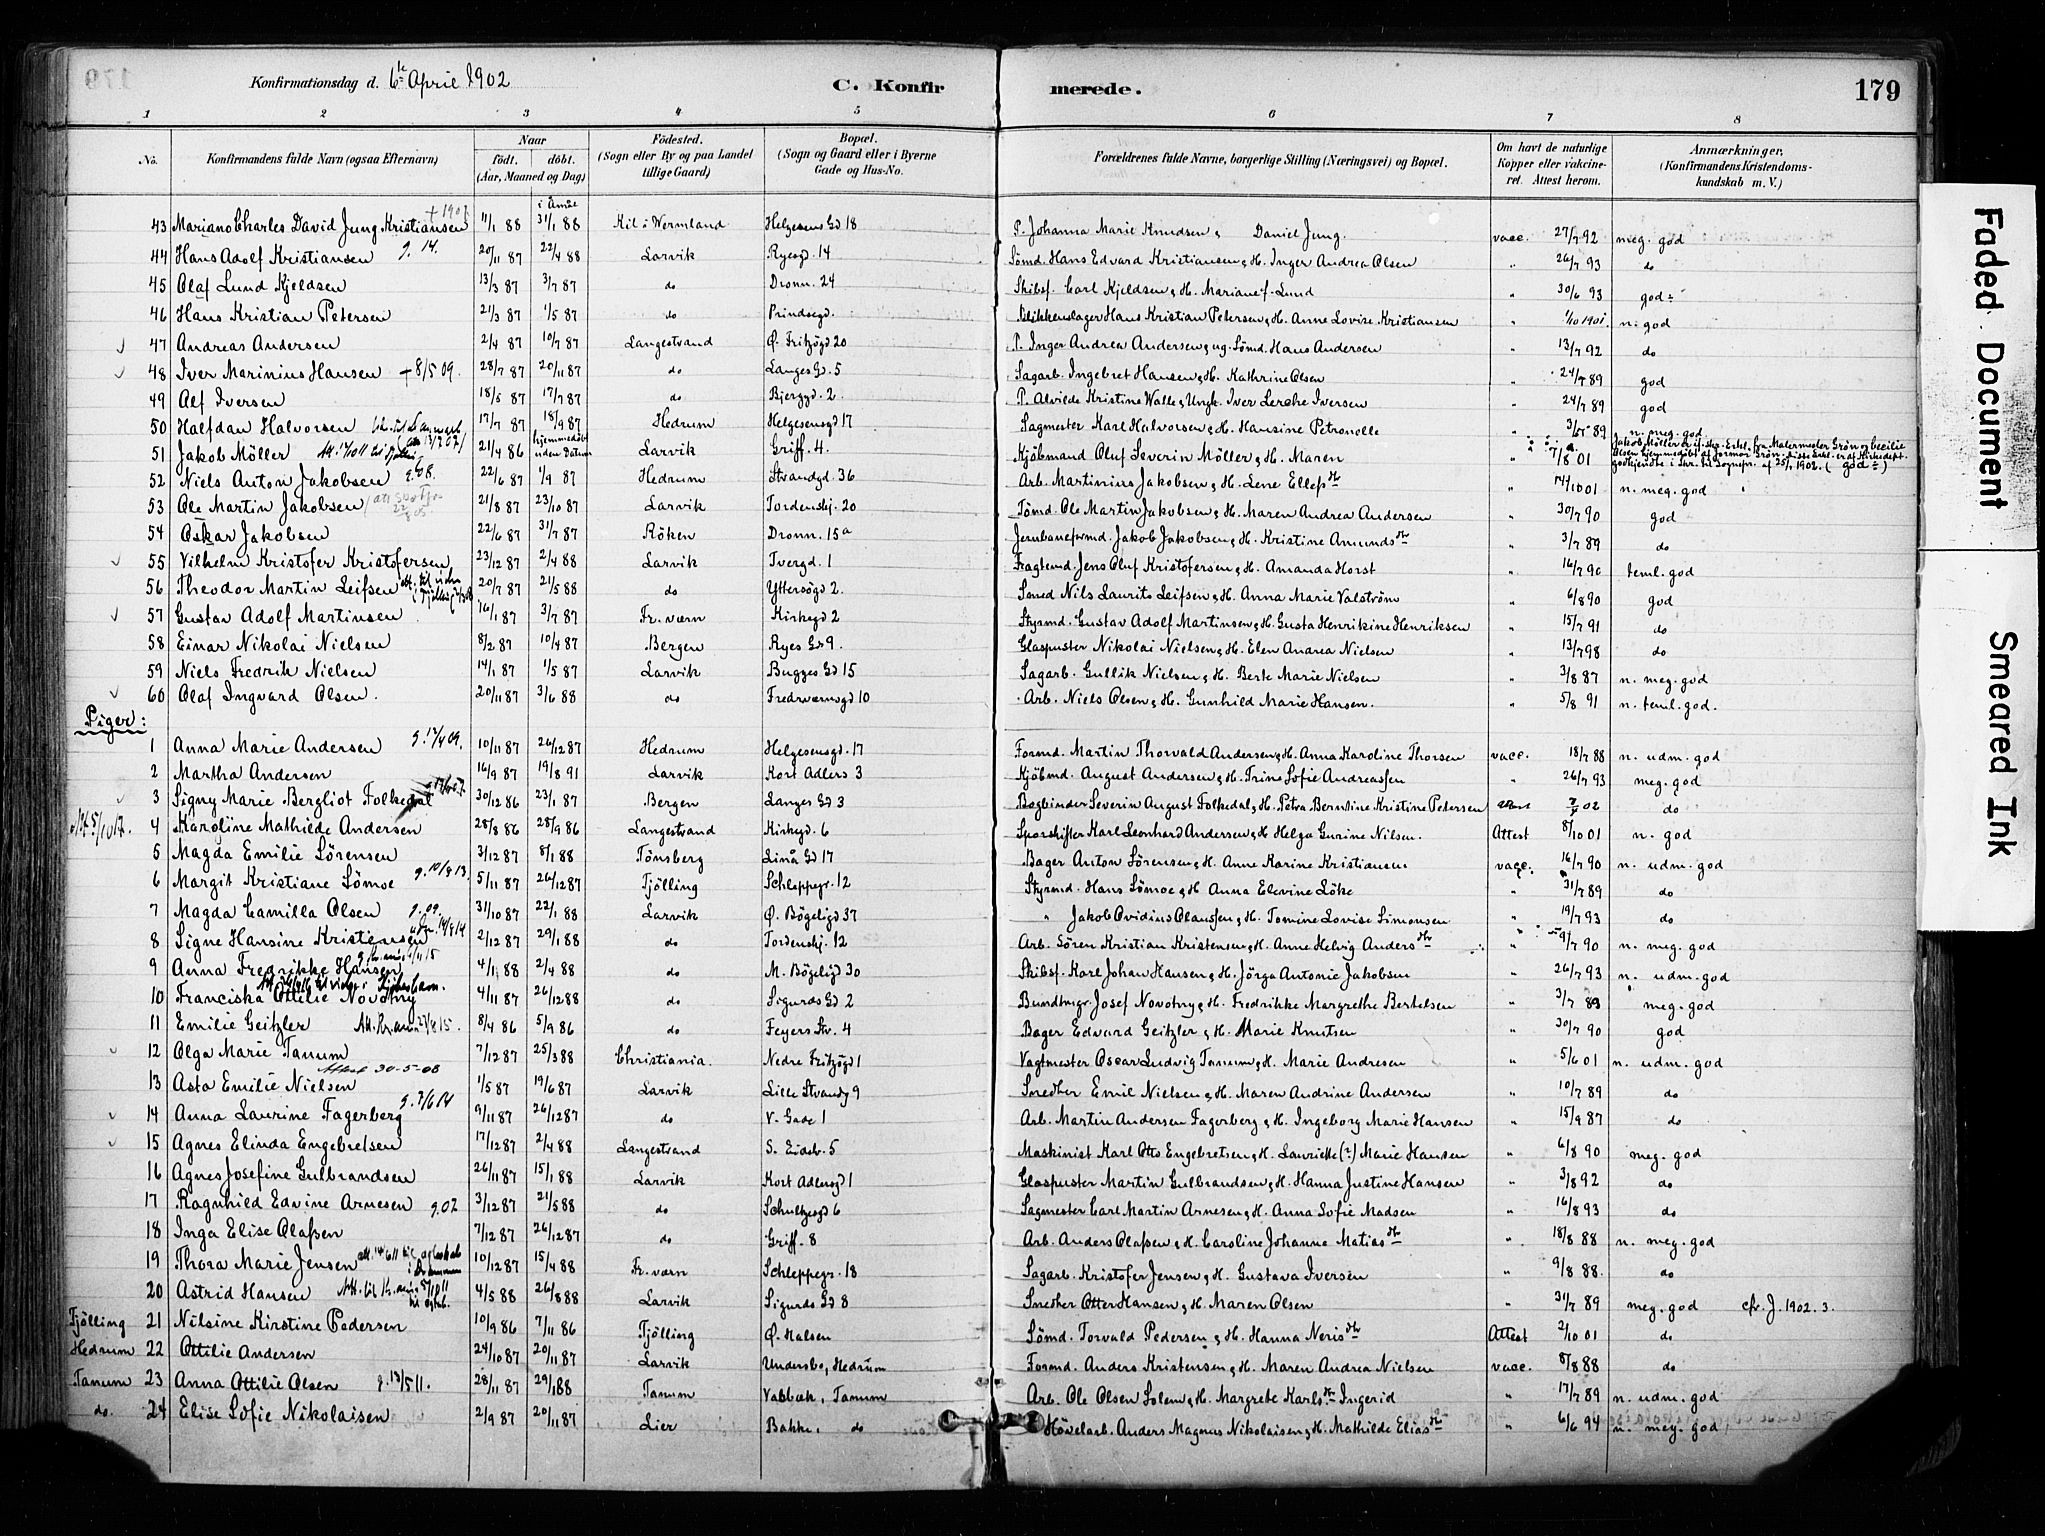 179
Konfirmationsdag d. 6te April 1902
C. Konfirmerede.
1 2 3 4 5 6 7 8
No. Konfirmandens fulde Navn (ogsaa Efternavn) Naar födt. döbt. (Aar, Maaned og Dag) Födested. (Sogn eller By og paa Landet tillige Gaard) Bopæl. (Sogn og Gaard eller i Byerne Gade og Hus-No. Forældrenes fulde Navne, borgerlige Stilling (Næringsvei) og Bopæl. Om havt de naturlige Kopper eller vakcineret. Attest herom. Anmærkninger, (Konfirmandens Kristendomskundskab m. V.)
43 Mariano Charles David Jung Kristiansen 11/1 88 31/1 88 Kil i Wermland Helgesens Gd 18 P. Johanna Marie Knudsen & Daniel Jung. vacc. 27/7 92 meg. god
44 Hans Adolf Kristiansen g. 14. 20/11 87 22/4 88 Larvik Ryesgd. 14 Sömd. Hans Edvard Kristiansen & H. Inger Andrea Olsen " 26/7 93 do
45 Olaf Lund Kjeldsen 13/3 87 3/7 87 do Dronn. 24 Skibsf. Carl Kjeldsen & H. Mariane f. Lund " 30/6 93 god ÷
46 Hans Kristian Petersen 21/3 87 1/5 87 do Prindsegd. Blikkenslager Hans Kristian Petersen & H. Anne Lovise Kristiansen " 1/10 1901. n. god
47 Andreas Andersen 2/4 87 10/7 87 Langestrand Ø. Fritzögd 20 P. Inger Andrea Andersen & ug. Sömd. Hans Andersen " 13/7 92 do
48 Iver Marinius Hansen + 8/5 09. 28/7 87 20/11 87 do Langes Gd. 5 Sagarb. Ingebret Hansen & H. Kathrine Olsen " 24/7 89 god
49 Alf Iversen 18/5 87 17/7 87 do Bjerggd. 2. P. Alvilde Kristine Walle & Ungk. Iver Lerche Iversen " 24/7 89 god
50 Halfdan Halvorsen 17/7 87 18/9 87 Hedrum Helgesensgd 17 Sagmester Karl Halvorsen & H. Hansine Petronelle " 89 n. meg. god
51 Jakob Möller 21/4 86 hjemmedöbt uden Datum Larvik Griff. 4. Kjöbmand Oluf Severin Möller & H. Maren 7/8 01 Jakob Möller er if. Erkl. fra Malermester Grön og Cecilie Olsen hjemmedöbt af Jormor Grön. Disse Erkl. er af Kirkedept. godkjendte i Skr. til Sognepr. af 25/1 1902. (god ÷)
52 Niels Anton Jakobsen g. 08. 22/6 87 1/9 87 Hedrum Strandgd. 36 Arb. Martinius Jakobsen & H. Lene Ellefsdtr " 14/10 01 n. meg. god
53 Ole Martin Jakobsen 21/8 87 23/10 87 Larvik Tordenskj. 20 Tömd. Ole Martin Jakobsen & H. Maren Andrea Andersen " 30/7 90 god
54 Oskar Jakobsen 22/6 87 31/7 87 Röken Dronn. 15a Jernbaneformd. Jakob Jakobsen & H. Kristine Amundsdtr " 3/7 89 do
55 Vilhelm Kristofer Kristofersen 23/12 87 2/4 88 Larvik Tvergd. 1 Fragtemd. Jens Oluf Kristofersen & H. Amanda Horst " 16/7 90 teml. god
56 Theodor Martin Leifsen 20/7 87 21/5 88 do Yttersögd 2. Smed Nils Laurits Leifsen & H. Anna Marie Valström " 6/8 90 god
57 Gustav Adolf Martinsen 16/1 87 3/7 87 Fr. værn Kirkegd 2 Styrmd. Gustav Adolf Martinsen & H. Gusta Henrikine Henriksen " 15/7 91 do
58 Einar Nikolai Nielsen 8/2 87 10/4 87 Bergen Ryes Gd 9. Glaspuster Nikolai Nielsen & H. Elen Andrea Nielsen " 13/7 98 do
59 Niels Fredrik Nielsen 14/1 87 1/5 87 Larvik Bugges Gd 15 Sagarb. Gullik Nielsen & H. Berte Marie Nielsen " 3/8 87 n. meg. god
60 Olaf Ingvard Olsen. 20/11 87 3/6 88 do Fredrværnsgd 10 Arb. Niels Olsen & H. Gunhild Marie Hansen. " 5/8 91 n. teml. god.
Piger:
1 Anna Marie Andersen g. 12/4 09. 10/11 87 26/12 87 Hedrum Helgesensgd. 17 Formd. Martin Thorvald Andersen & H. Anna Karoline Thorsen vacc. 18/7 88 n. udm. god
2 Martha Andersen 16/9 87 19/8 91 Larvik Kort Adlers 3 Kjöbmd. August Andersen & H. Trine Sofie Andreassen " 26/7 93 meg. god
3 Signy Marie Bergliot Folkedal 30/12 86 23/1 87 Bergen Langes Gd 3 Bogbinder Severin August Folkedal & H. Petra Berntine Kristine Petersen 02 do
4 Karoline Mathilde Andersen 28/8 86 28/9 86 Langestrand Kirkegd. 6 Sporskifter Karl Leonhard Andersen & H. Helga Gurine Nilsen. Attest 8/10 01 n. god
5 Magda Emilie Sörensen 3/12 87 8/1 88 Tönsberg Linå Gd 17 Bager Anton Sörensen & H. Anne Karine Kristiansen vacc. 16/7 90 n. udm. god
6 Margit Kristiane Sömoe 5/11 87 26/12 87 Tjölling Schleppegr. 12 Styrmd. Hans Sömoe & H. Anna Elevine Löke " 31/7 89 do
7 Magda Camilla Olsen g. 09. 31/10 87 22/1 88 Larvik Ø. Bögeligd 37 " Jakob Ovidius Olaussen & H. Tomine Lovise Simonsen " 19/7 93 do
8 Signe Hansine Kristensen 2/12 87 29/1 88 do Tordenskj. 12 Arb. Sören Kristian Kristensen & H. Anne Helvig Andersdtr " 9/7 90 n. meg. god
9 Anna Fredrikke Hansen 4/1 88 2/4 88 do M. Bögeligd 30 Skibsf. Karl Johan Hansen & H. Jörga Antonie Jakobsen " 26/7 93 n. udm. god
10 Franciska Ottilie Novotny 4/11 87 26/12 88 do Sigurds Gd 2 Bundtmgr. Josef Novotny & H. Fredrikke Margrethe Bertelsen " 3/7 89 meg. god
11 Emilie Geitzler 8/4 86 5/9 86 do Feyers Str. 4 Bager Edvard Geitzler & H. Marie Knutsen " 30/7 90 god
12 Olga Marie Tanum 7/12 87 25/3 88 Christiania. Nedre Fritzögd 1 Vagtmester Oscar Ludvig Tanum & H. Marie Andresen " 5/6 01 n. udm. god
Attest 30-5-08
13 Asta Emilie Nielsen 1/5 87 19/6 87 Larvik Lille Strandg 9 Snedker Emil Nielsen & H. Maren Andrine Andersen " 10/7 89 do
14 Anna Laurine Fagerberg 9/11 87 26/12 87 do V. Gade 1 Arb. Martin Andersen Fagerberg & H. Ingeborg Marie Hansen " 15/9 87 do
15 Agnes Elinda Engebretsen 17/12 87 2/4 88 Langestrand S. Eidstr. 5 Maskinist Karl Otto Engebretsen & H. Lauriette (?) Marie Hansen " 6/8 90 meg. god
16 Agnes Josefine Gulbrandsen 26/11 87 15/1 88 Larvik Kort Adlersgd 1 Glaspuster Martin Gulbrandsen & H. Hanna Justine Hansen " 3/8 92 do
17 Ragnhild Edvine Arnesen g. 07 3/12 87 21/5 88 do Schultzesgd 6 Sagmester Carl Martin Arnesen & H. Anna Sofie Madsen " 16/8 93 do
18 Inga Elise Olafsen 7/12 87 26/12 87 do Griff. 8 Arb. Anders Olafsen & H. Caroline Johanne Matiasdtr " 18/8 88 n. meg. god
19 Thora Marie Jensen 10/12 87 15/4 88 Fr. værn Schleppegr. 18 Sagarb. Kristofer Jensen & H. Gustava Iversen " 9/8 88. do
20 Astrid Hansen 4/5 88 26/8 88 Larvik Sigurds Gd 8 Snedker Otter Hansen & H. Maren Olsen " 31/7 89 meg. god cfr. J. 1902. 3.
Tjölling 21 Nilsine Kirstine Pedersen 10/9 86 7/11 86 Tjölling Ø. Halsen Sömd. Torvald Pedersen & H. Hanna Nerisdtr Attest 2/10 01 do
Hedrum 22 Ottilie Andersen 24/10 87 20/11 87 Larvik Undersbo, Hedrum Formd. Anders Kristensen & H. Maren Andrea Nielsen vacc. 8/8 88 do
Tanum 23 Anna Ottilie Olsen g. 13/5 11. 28/11 87 29/1 88 Tanum Vabbak, Tanum Arb. Ole Olsen Solem & H. Margrete Karlsdtr Ingerid " 17/7 89 n. udm. god
do. 24 Elise Sofie Nikolaisen 2/9 87 20/11 87 Lier Bakke, do Hövelarb. Anders Magnus Nikolaisen & H. Mathilde Eliasdtr " 6/6 94 n. meg. god
Faded Document
Smeared Ink